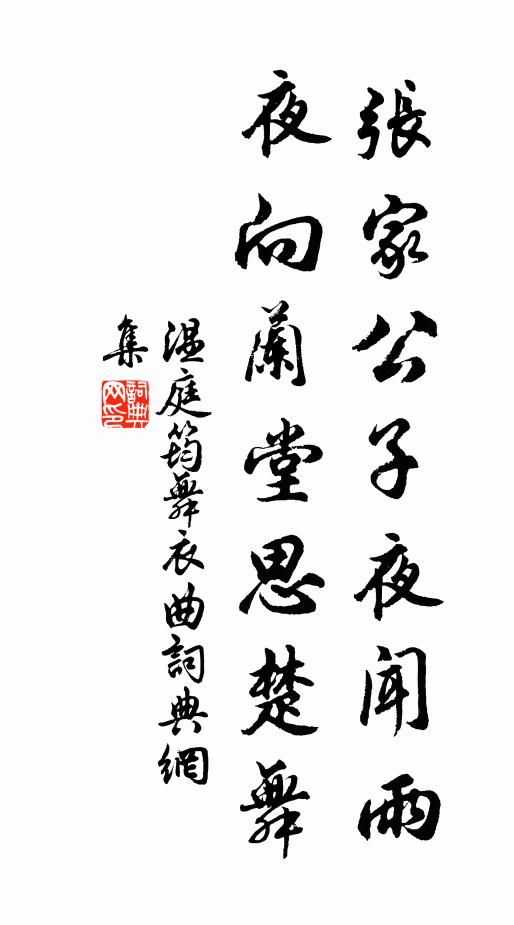 張家公子夜聞雨
夜向蘭堂思楚舞
温庭筠舞衣曲詞典網
集
詞典网印